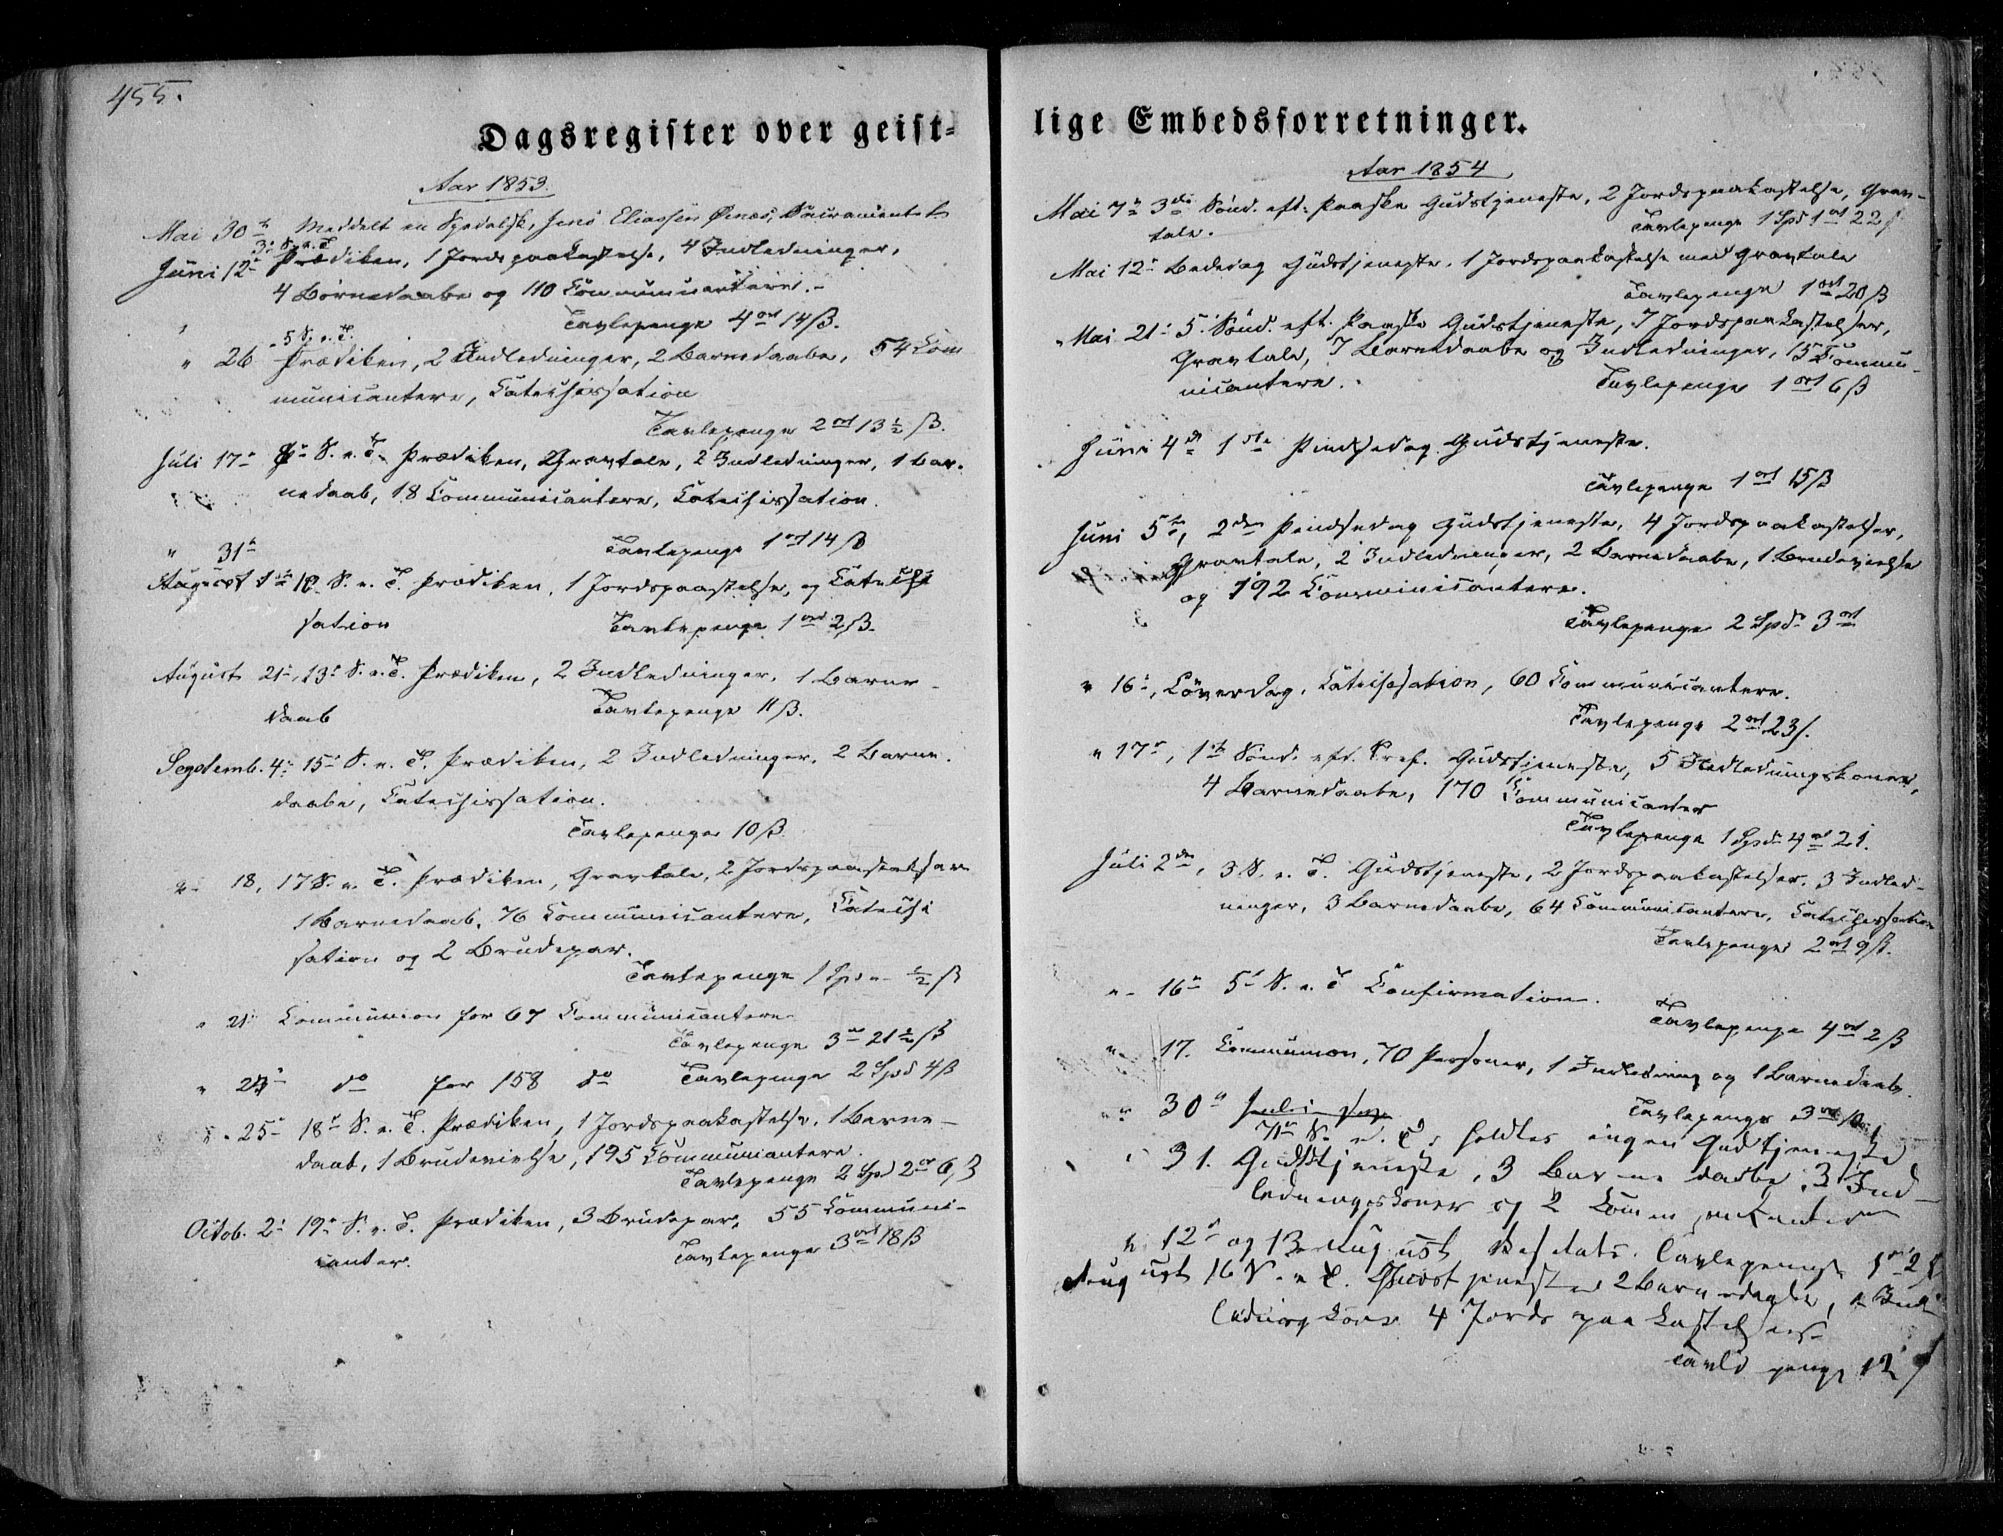 455.
Dagsregister over geist-
Aar 1853.
Mai 30te Meddelt en Spedalsk, Jens Eliassen Sacramentet
3. S. e. T.
Juni 12te Prædiken, 1 Jordspaakastelse, 4 Indledninger,
4 Barnedaabe og 110 Communicantere.
Tavlepenge 4 ort 14 ß.
5 S. e. T.
" 26 Prædiken, 2 Indledninger, 2 Barnedaabe, 54 Com
municantere, Catechisation
Tavlepenge 2 ort 13 ½ ß.
Juli 17de S. e. T. Prædiken, Gravtale, 2 Indledninger, 1 Bar-
nedaab, 18 Communicantere, Catechisation.
" 31te Tavlepenge 1 ort 14 ß
August S. e. T. Prædiken, 1 Jordspaastelse, og Catechi
sation Tavlepenge 1 ort 2 ß.
August 21de, 13de S. e. T. Prædiken, 2 Indledninger, 1 Barne-
daab Tavlepenge 11 ß.
Septemb. 4de 15de S. e. T. Prædiken, 2 Indledninger, 2 Barne-
daabe, Catechisation.
Tavlepenge 10 ß.
" 18, 17 S. e. T. Prædiken, Gravtale, 2 Jordspaastelser
1 Barnedaab, 76 Communicantere, Catechi
sation og 2 Brudepar.
Tavlepenge 1 Spd " - ½ ß
" 21 Communion for 67 Communicantere
Tavlepenge 3 ort 21 ½ ß
" 23 do for 158 do Tavlepenge 2 Spd 4 ß
" 25de 18de S. e. T. Prædiken, 1 Jordspaakastelse, 1 Barne-
daab, 1 Brudevielse, 195 Communicantere.
Tavlepenge 2 Spd 2 ort 6 ß
Octob. 2de 19de S. e. T. Prædiken, 3 Brudepar, 55 Communi-
canter. Tavlepenge 3 ort 18 ß
lige Embedsforretninger.
Aar 1854
Mai 7de 3die Sønd. eft. Paaske Gudstjeneste, 2 Jordspaakastelse, Grav-
tale. Tavlepenge 1 Spd 1 ort 22 ß
Mai 12te Bededag Gudstjeneste, 1 Jordspaakastelse med Gravtale
Tavlepenge 1 ort 20 ß
Mai 21de 5. Sønd. eft. Paaske Gudstjeneste, 7 Jordspaakastelser,
Gravtale, 7 Barnedaabe og Indledninger, 15 Commu-
nicantere. Tavlepenge 1 ort 6 ß
Juni 4de 1ste Pindsedag Gudstjeneste.
Tavlepenge 1 ort 15 ß
Juni 5te, 2den Pindsedag Gudstjeneste, 4 Jordspaakastelser,
Gravtale, 2 Indledninger, 2 Barnedaabe, 1 Brudevielse
og 192 Communicantere.
Tavlepenge 2 Spd. 3 ort
" 16de, Løverdag, Catechisation, 60 Communicantere.
Tavlepenge 2 ort 23 ß.
" 17de, 1ste Sønd. eft. Tref. Gudstjeneste, 5 Indledningskoner,
4 Barnedaabe, 170 Communicanter
Tavlepenge 1 Spd. 4 ort 21.
Juli 2den, 3 S. e. T. Gudstjeneste, 2 Jordspaakastelser, 3 Indled-
ninger, 3 Barnedaabe, 64 Communicantere, Catechisation
Tavlepenge 2 ort 9 ß.
" 16de 5te S. e. T Confirmation.
Tavlepenge 4 ort 2 ß
" 17. Communion, 70 Personer, 1 Indledning og 1 Barnedaab.
Tavlepenge 3 ort
" 30te
7de S. e. T. holdtes ingen Gudstjeneste
" 31. Gudstjeneste, 3 Barnedaabe, 3 Ind-
ledningskoner og 2 Communicantere
12te og 13 August Tavlepenge
August 16 S. e. T. Gudstjeneste 2 Barnedaabe, Ind-
ledningkone 4 Jordspaakastelser
Tavlepenge 12 ß